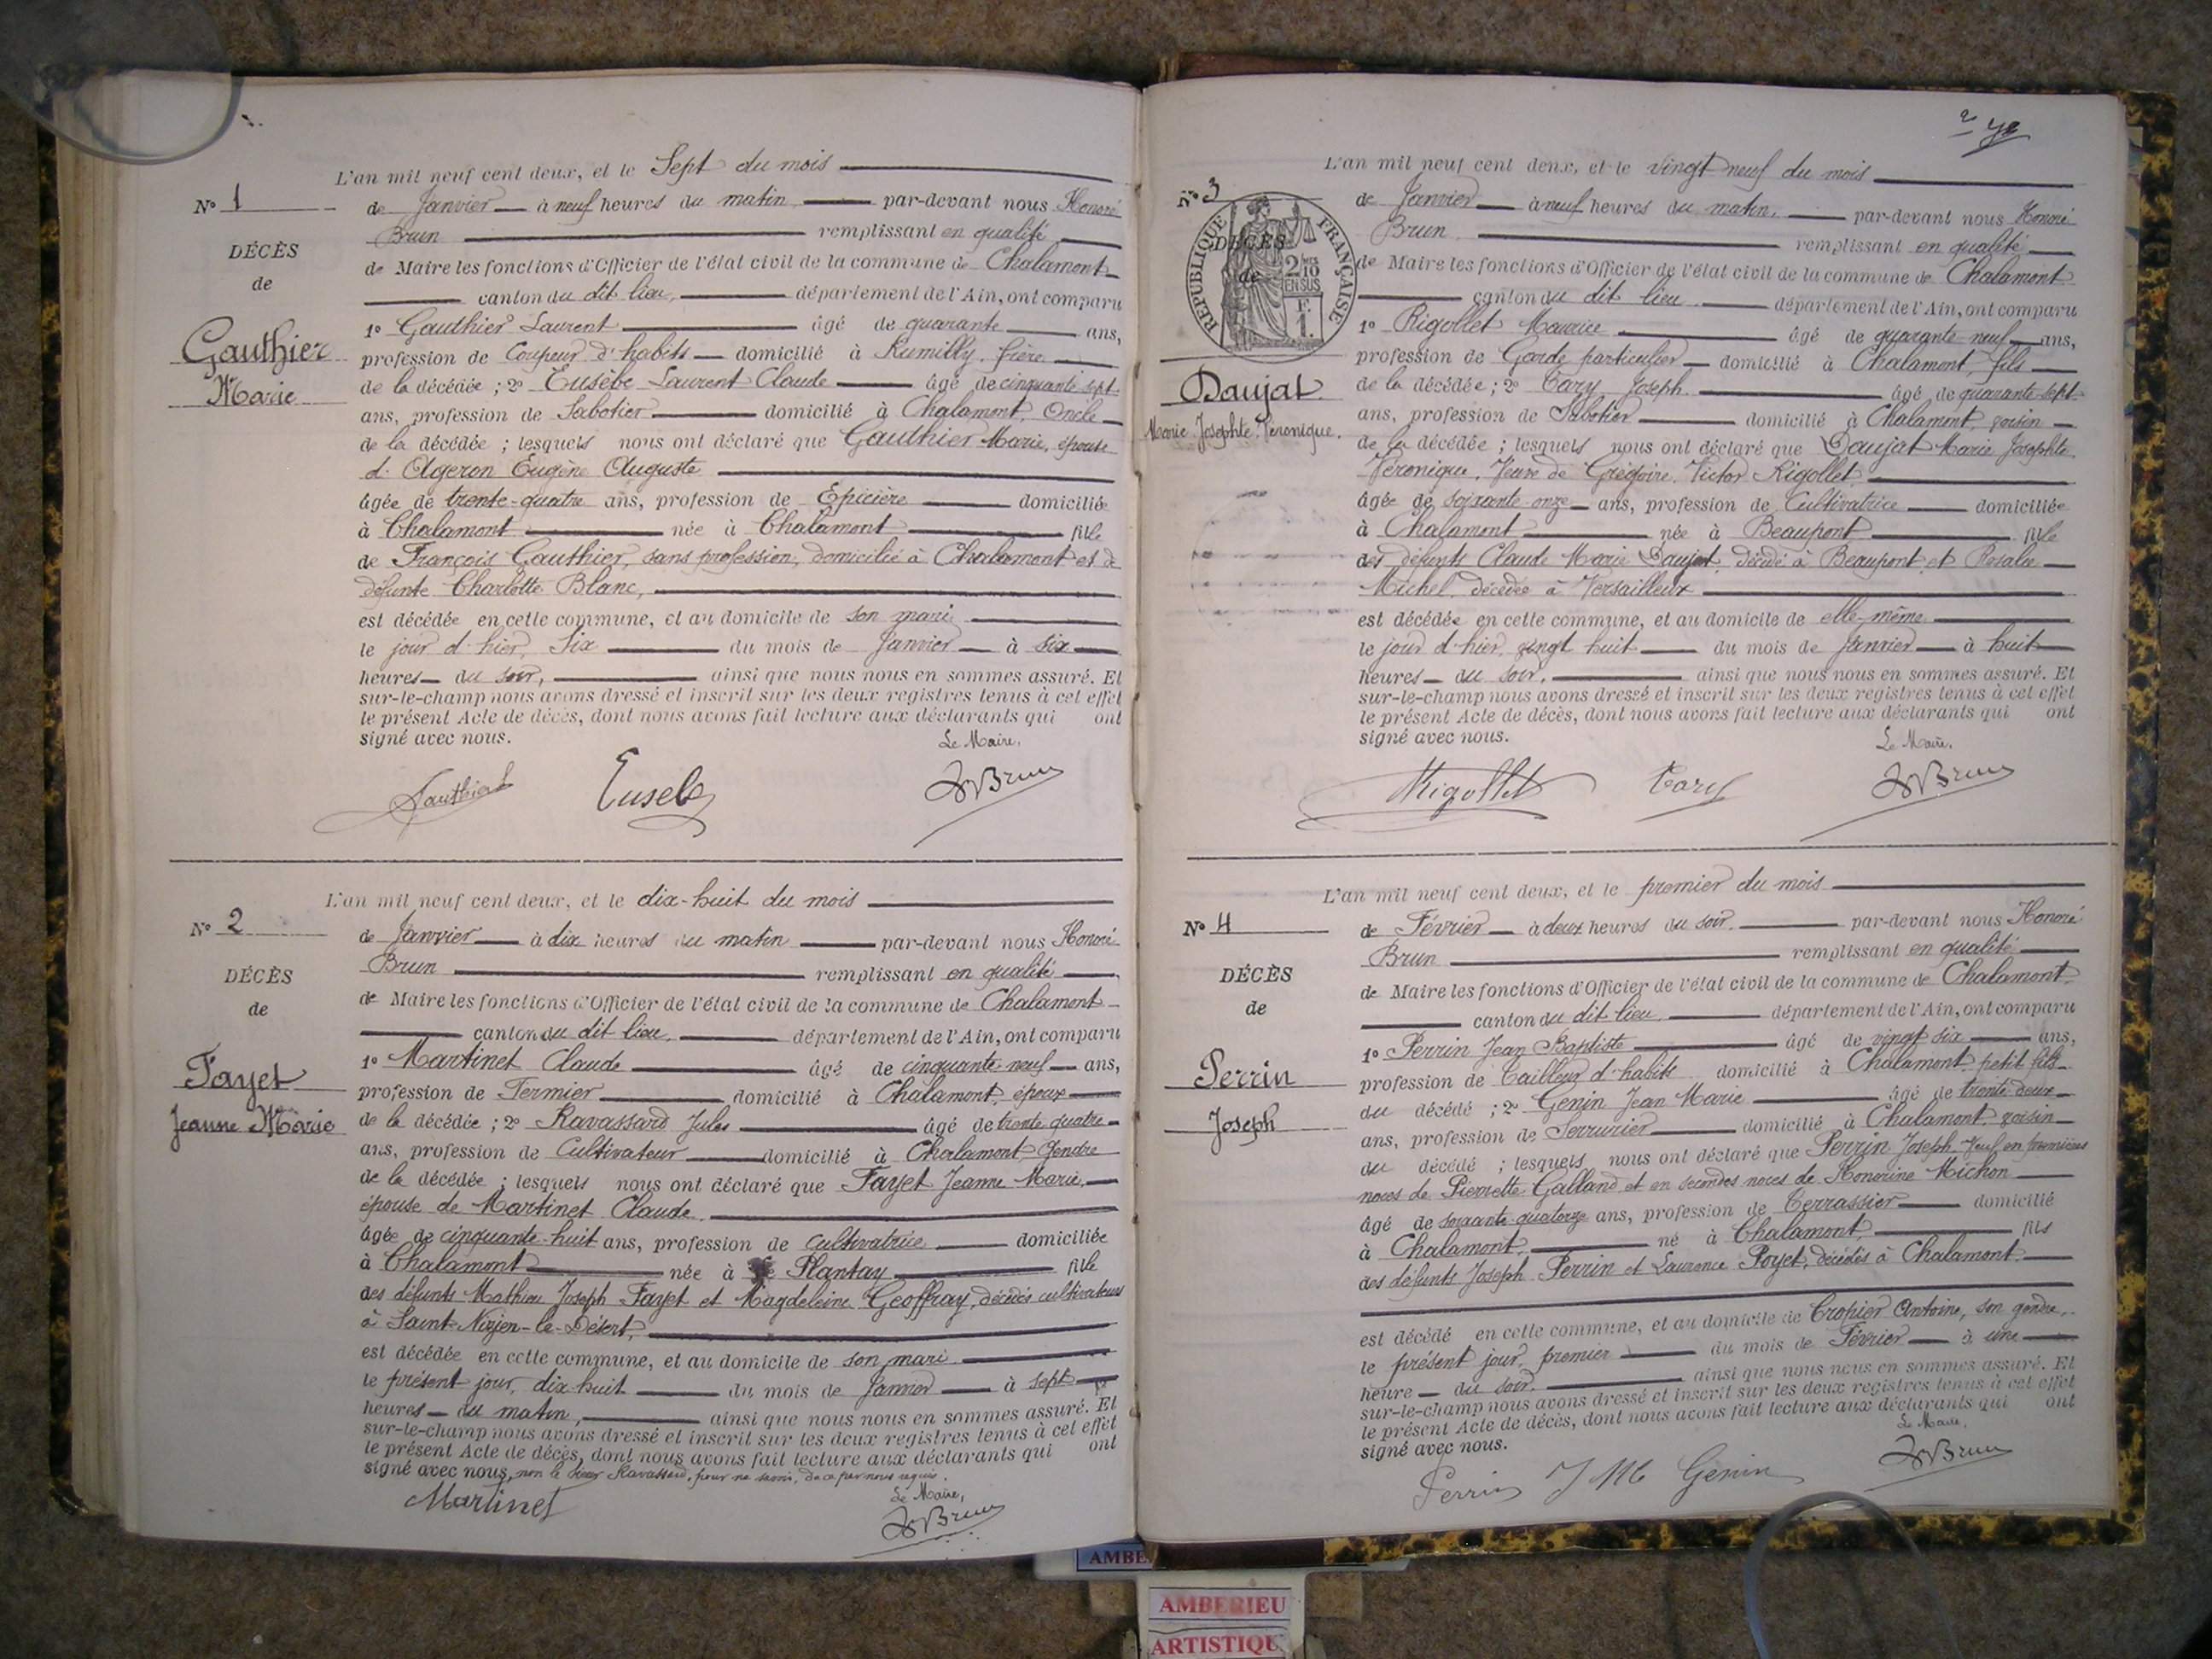 L'an mil neuf cent deux, et le Sept du mois
N° 1
de Janvier à neuf heures du matin par-devant nous Honoré
Brun remplissant en qualité
DÉCÈS
de Maire les fonctions d'Officier de l'état civil de la commune de Chalamont
de
canton du dit lieu, département de l'Ain, ont comparu
1° Gauthier Laurent âgé de quarante ans,
Gauthier
profession de Coupeur d'habits domicilié à Rumilly, frère
Marie
de la décédée ; 2° Eusèbe Laurent Claude âgé de cinquante sept
ans, profession de Sabotier domicilié à Chalamont, Oncle
de la décédée ; lesquels nous ont déclaré que Gauthier Marie, épouse
d'Ageron Eugène Auguste
âgée de trente-quatre ans, profession de Epicière domiciliée
à Chalamont née à Chalamont fille
de François Gauthier, sans profession, domicilié à Chalamont et de
défunte Charlotte Blanc,
est décédée en cette commune, et au domicile de son mari
le jour d'hier, Six du mois de Janvier à six
heures du soir, ainsi que nous nous en sommes assuré. Et
sur-le-champ nous avons dressé et inscrit sur les deux registres tenus à cet effet
le présent Acte de décès, dont nous avons fait lecture aux déclarants qui ont
signé avec nous.
Le Maire,
Gauthier L Eusebe Brun
L'an mil neuf cent deux, et le dix-huit du mois
N° 2
de Janvier à dix heures du matin par-devant nous Honoré
Brun remplissant en qualité
DÉCÈS
de Maire les fonctions d'Officier de l'état civil de la commune de Chalamont
de
canton du dit lieu, département de l'Ain, ont comparu
1° Martinet Claude âgé de cinquante-neuf ans,
Fayet
profession de Fermier domicilié à Chalamont, époux
Jeanne Marie
de la décédée ; 2° Ravassard Jules âgé de trente quatre
ans, profession de Cultivateur domicilié à Chalamont, Gendre
de la décédée ; lesquels nous ont déclaré que Fayet Jeanne Marie,
épouse de Martinet Claude
âgée de cinquante-huit ans, profession de cultivatrice domiciliée
à Chalamont née à Plantay fille
des défunts Mathieu Joseph Fayet et Magdeleine Geoffray, décédés cultivateurs
à Saint-Nizier-le-Désert,
est décédée en cette commune, et au domicile de son mari
le présent jour, dix-huit du mois de Janvier à sept
heures du matin, ainsi que nous nous en sommes assuré. Et
sur-le-champ nous avons dressé et inscrit sur les deux registres tenus à cet effet
le présent Acte de décès, dont nous avons fait lecture aux déclarants qui ont
signé avec nous, non le sieur Ravassard, pour ne savoir, de ce par nous requis.
Le Maire,
Martinet Brun
L'an mil neuf cent deux, et le vingt neuf du mois
N° 3
de Janvier à neuf heures du matin, par-devant nous Honoré
Brun remplissant en qualité
DÉCÈS
de
RÉPUBLIQUE FRANÇAISE
2/10 EN SUS
F. 1.
de Maire les fonctions d'Officier de l'état civil de la commune de Chalamont
canton du dit lieu département de l'Ain, ont comparu
1° Rigollet Maurice âgé de quarante neuf ans,
profession de Garde particulier domicilié à Chalamont, fils
Daujat
de la décédée ; 2° Cary Joseph âgé de quarante sept
ans, profession de Sabotier domicilié à Chalamont, voisin
Marie Josephte Véronique.
de la décédée ; lesquels nous ont déclaré que Daujat Marie Josephte
Véronique, Veuve de Grégoire Victor Rigollet
âgée de soixante onze ans, profession de Cultivatrice domiciliée
à Chalamont née à Beaupont fille
des défunts Claude Marie Daujat, décédé à Beaupont et Rosalie
Michel, décédée à Versailleux
est décédée en cette commune, et au domicile de elle-même
le jour d'hier, vingt huit du mois de Janvier à huit
heures du soir, ainsi que nous nous en sommes assuré. Et
sur-le-champ nous avons dressé et inscrit sur les deux registres tenus à cet effet
le présent Acte de décès, dont nous avons fait lecture aux déclarants qui ont
signé avec nous.
Le Maire.
Rigollet Cary Brun
L'an mil neuf cent deux, et le premier du mois
N° 4
de Février à deux heures du soir par-devant nous Honoré
Brun remplissant en qualité
DÉCÈS
de Maire les fonctions d'Officier de l'état civil de la commune de Chalamont
de
canton du dit lieu département de l'Ain, ont comparu
1° Perrin Jean Baptiste âgé de vingt six ans,
Perrin
profession de Tailleur d'habits domicilié à Chalamont, petit fils
Joseph
du décédé ; 2° Genin Jean Marie âgé de trente deux
ans, profession de Serrurier domicilié à Chalamont, voisin
du décédé ; lesquels nous ont déclaré que Perrin Joseph, veuf en premières
noces de Pierrette Galland et en secondes noces de Honorine Michon
âgé de soixante-quatorze ans, profession de Terrassier domicilié
à Chalamont, né à Chalamont, fils
des défunts Joseph Perrin et Laurence Poyet, décédés à Chalamont
est décédé en cette commune, et au domicile de Cropier Antoine, son gendre,
le présent jour, premier du mois de Février à une
heure du soir, ainsi que nous nous en sommes assuré. Et
sur-le-champ nous avons dressé et inscrit sur les deux registres tenus à cet effet
le présent Acte de décès, dont nous avons fait lecture aux déclarants qui ont
signé avec nous.
Le Maire,
Perrin J M Genin Brun
AMBE
AMBERIEU
ARTISTIQU